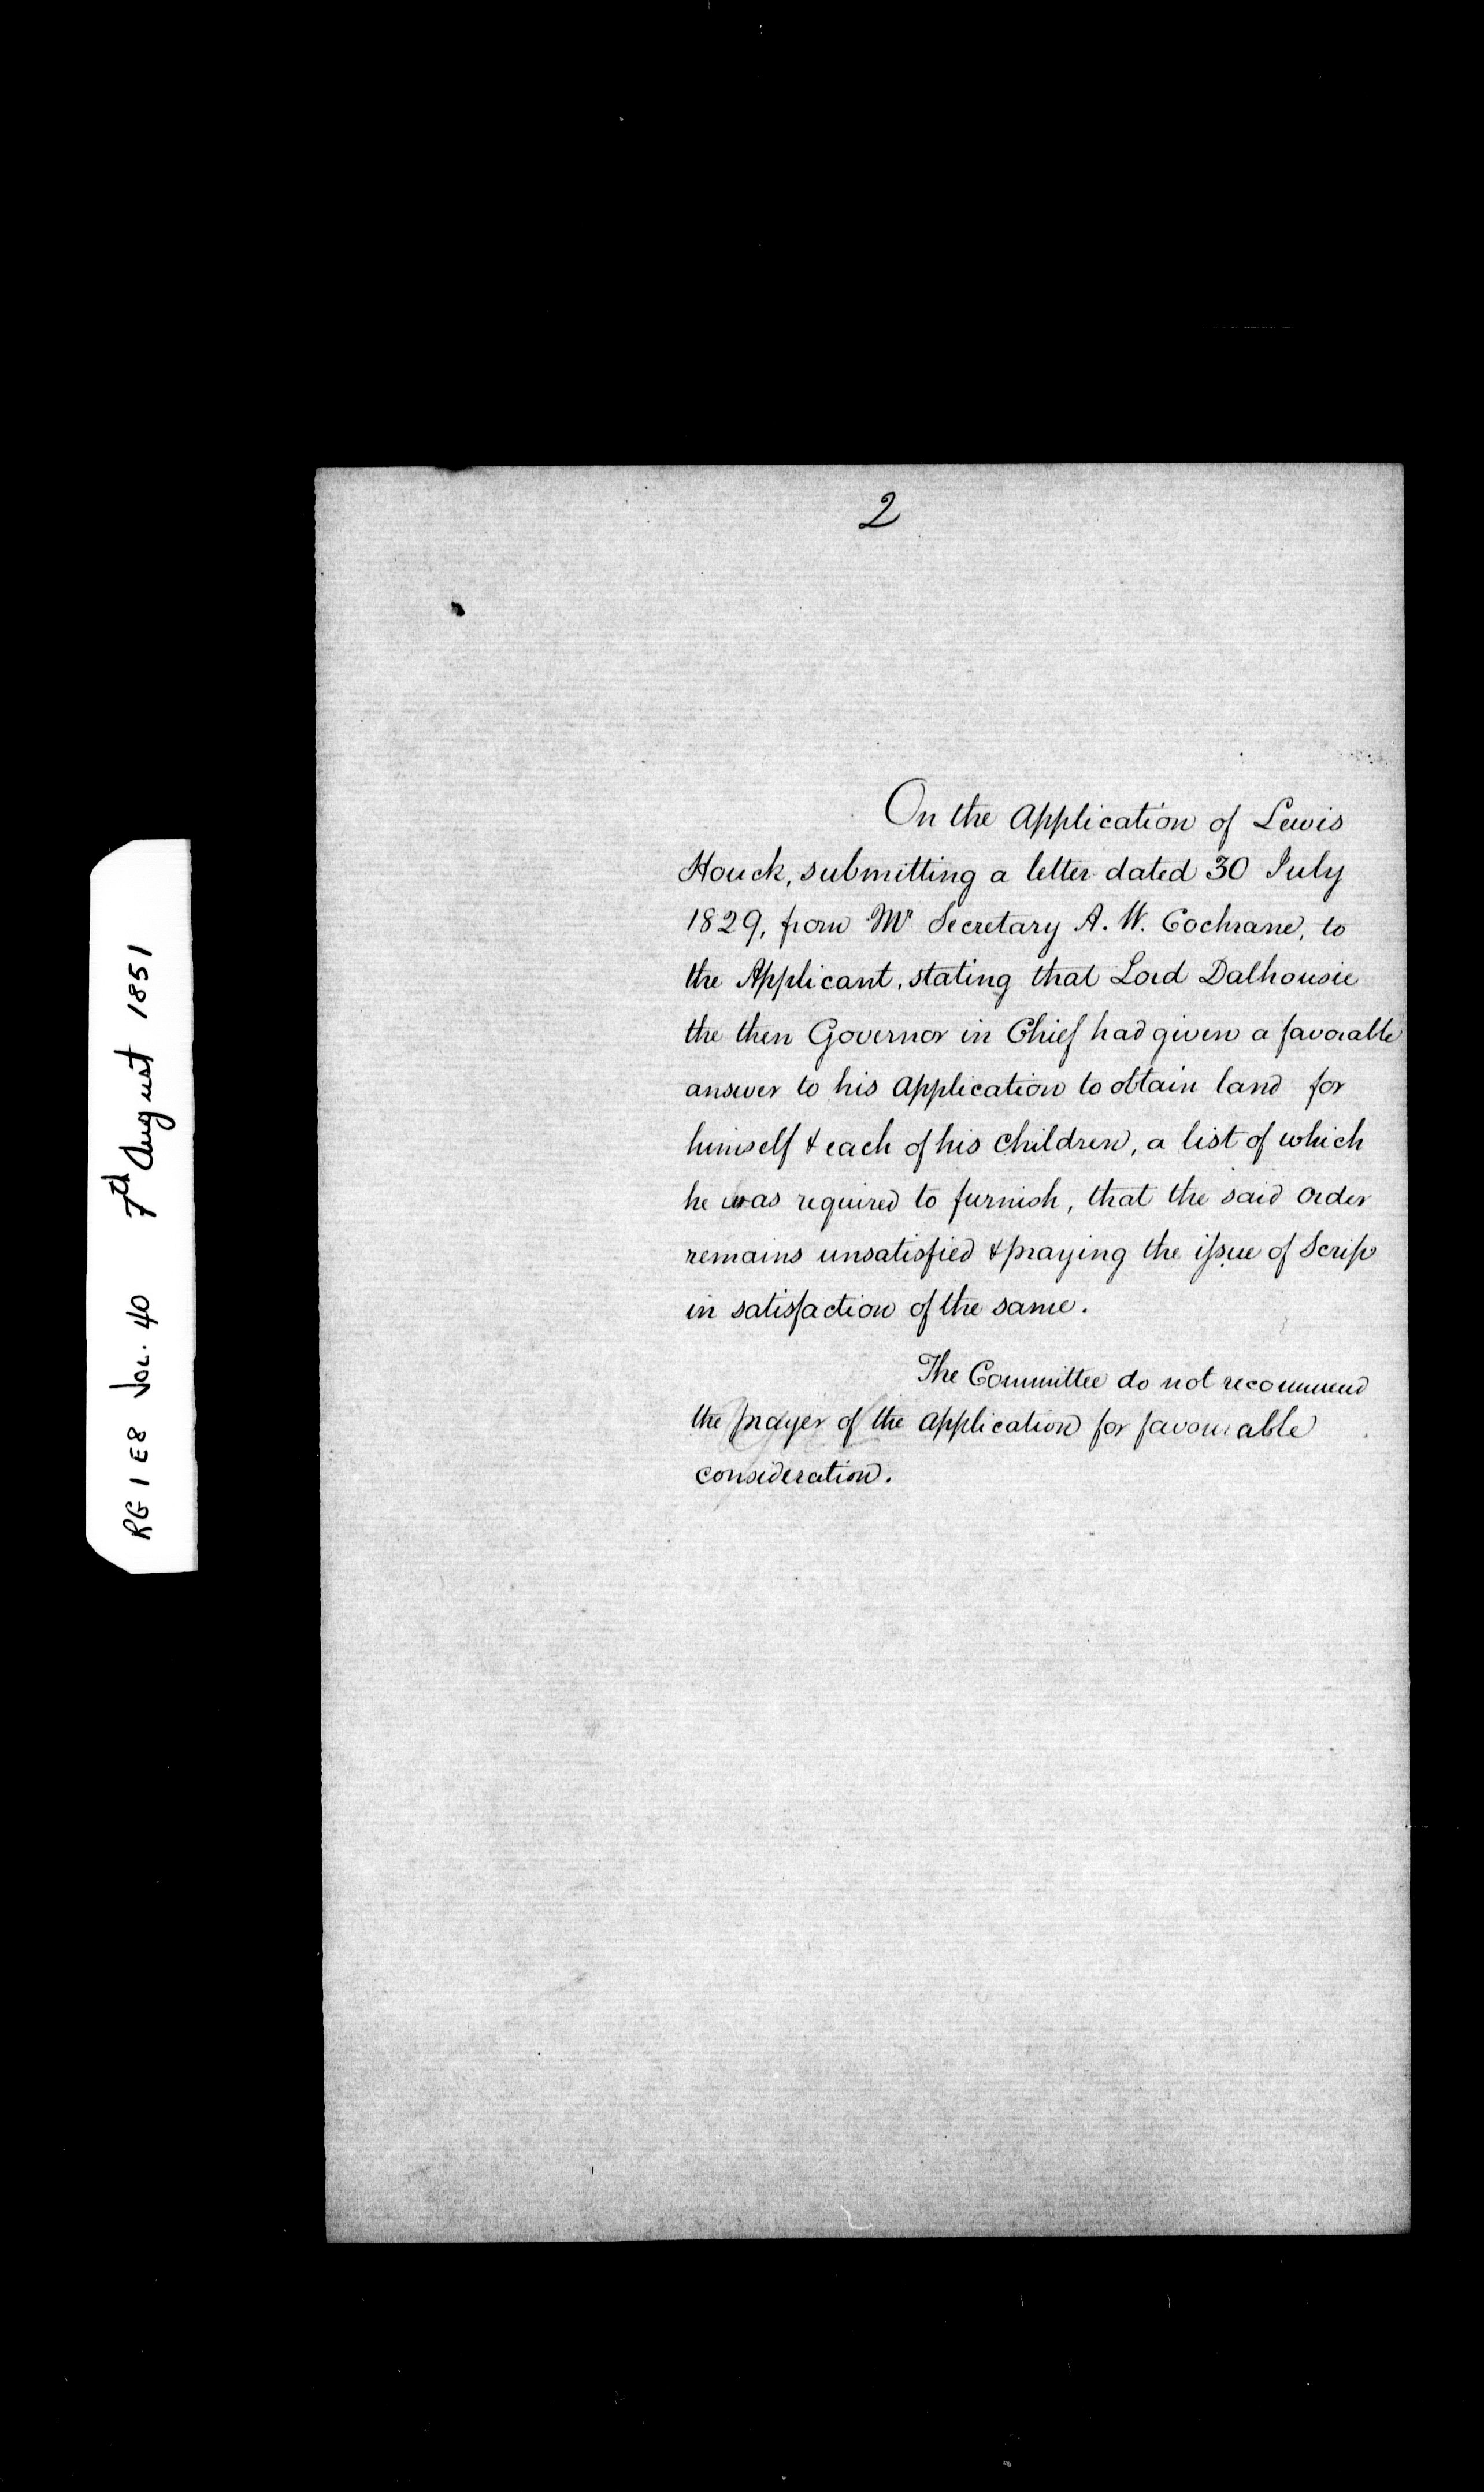 2
On the Application of Lewis
Houck, submitting a letter dated 30 July
1829, from Mr Secretary A. W. Cochrane, to
the Applicant, stating that Lord Dalhousie
the then Governor in Chief had given a favorable
answer to his Application to obtain land for
himself & each of his Children, a list of which
he was required to furnish, that the said order
remains unsatisfied & praying the issue of Scrip
in satisfaction of the same.
The Committee do not recommend
the prayer of the Application for favourable
consideration.
RG 1 E8 Vol. 40 7th August 1851